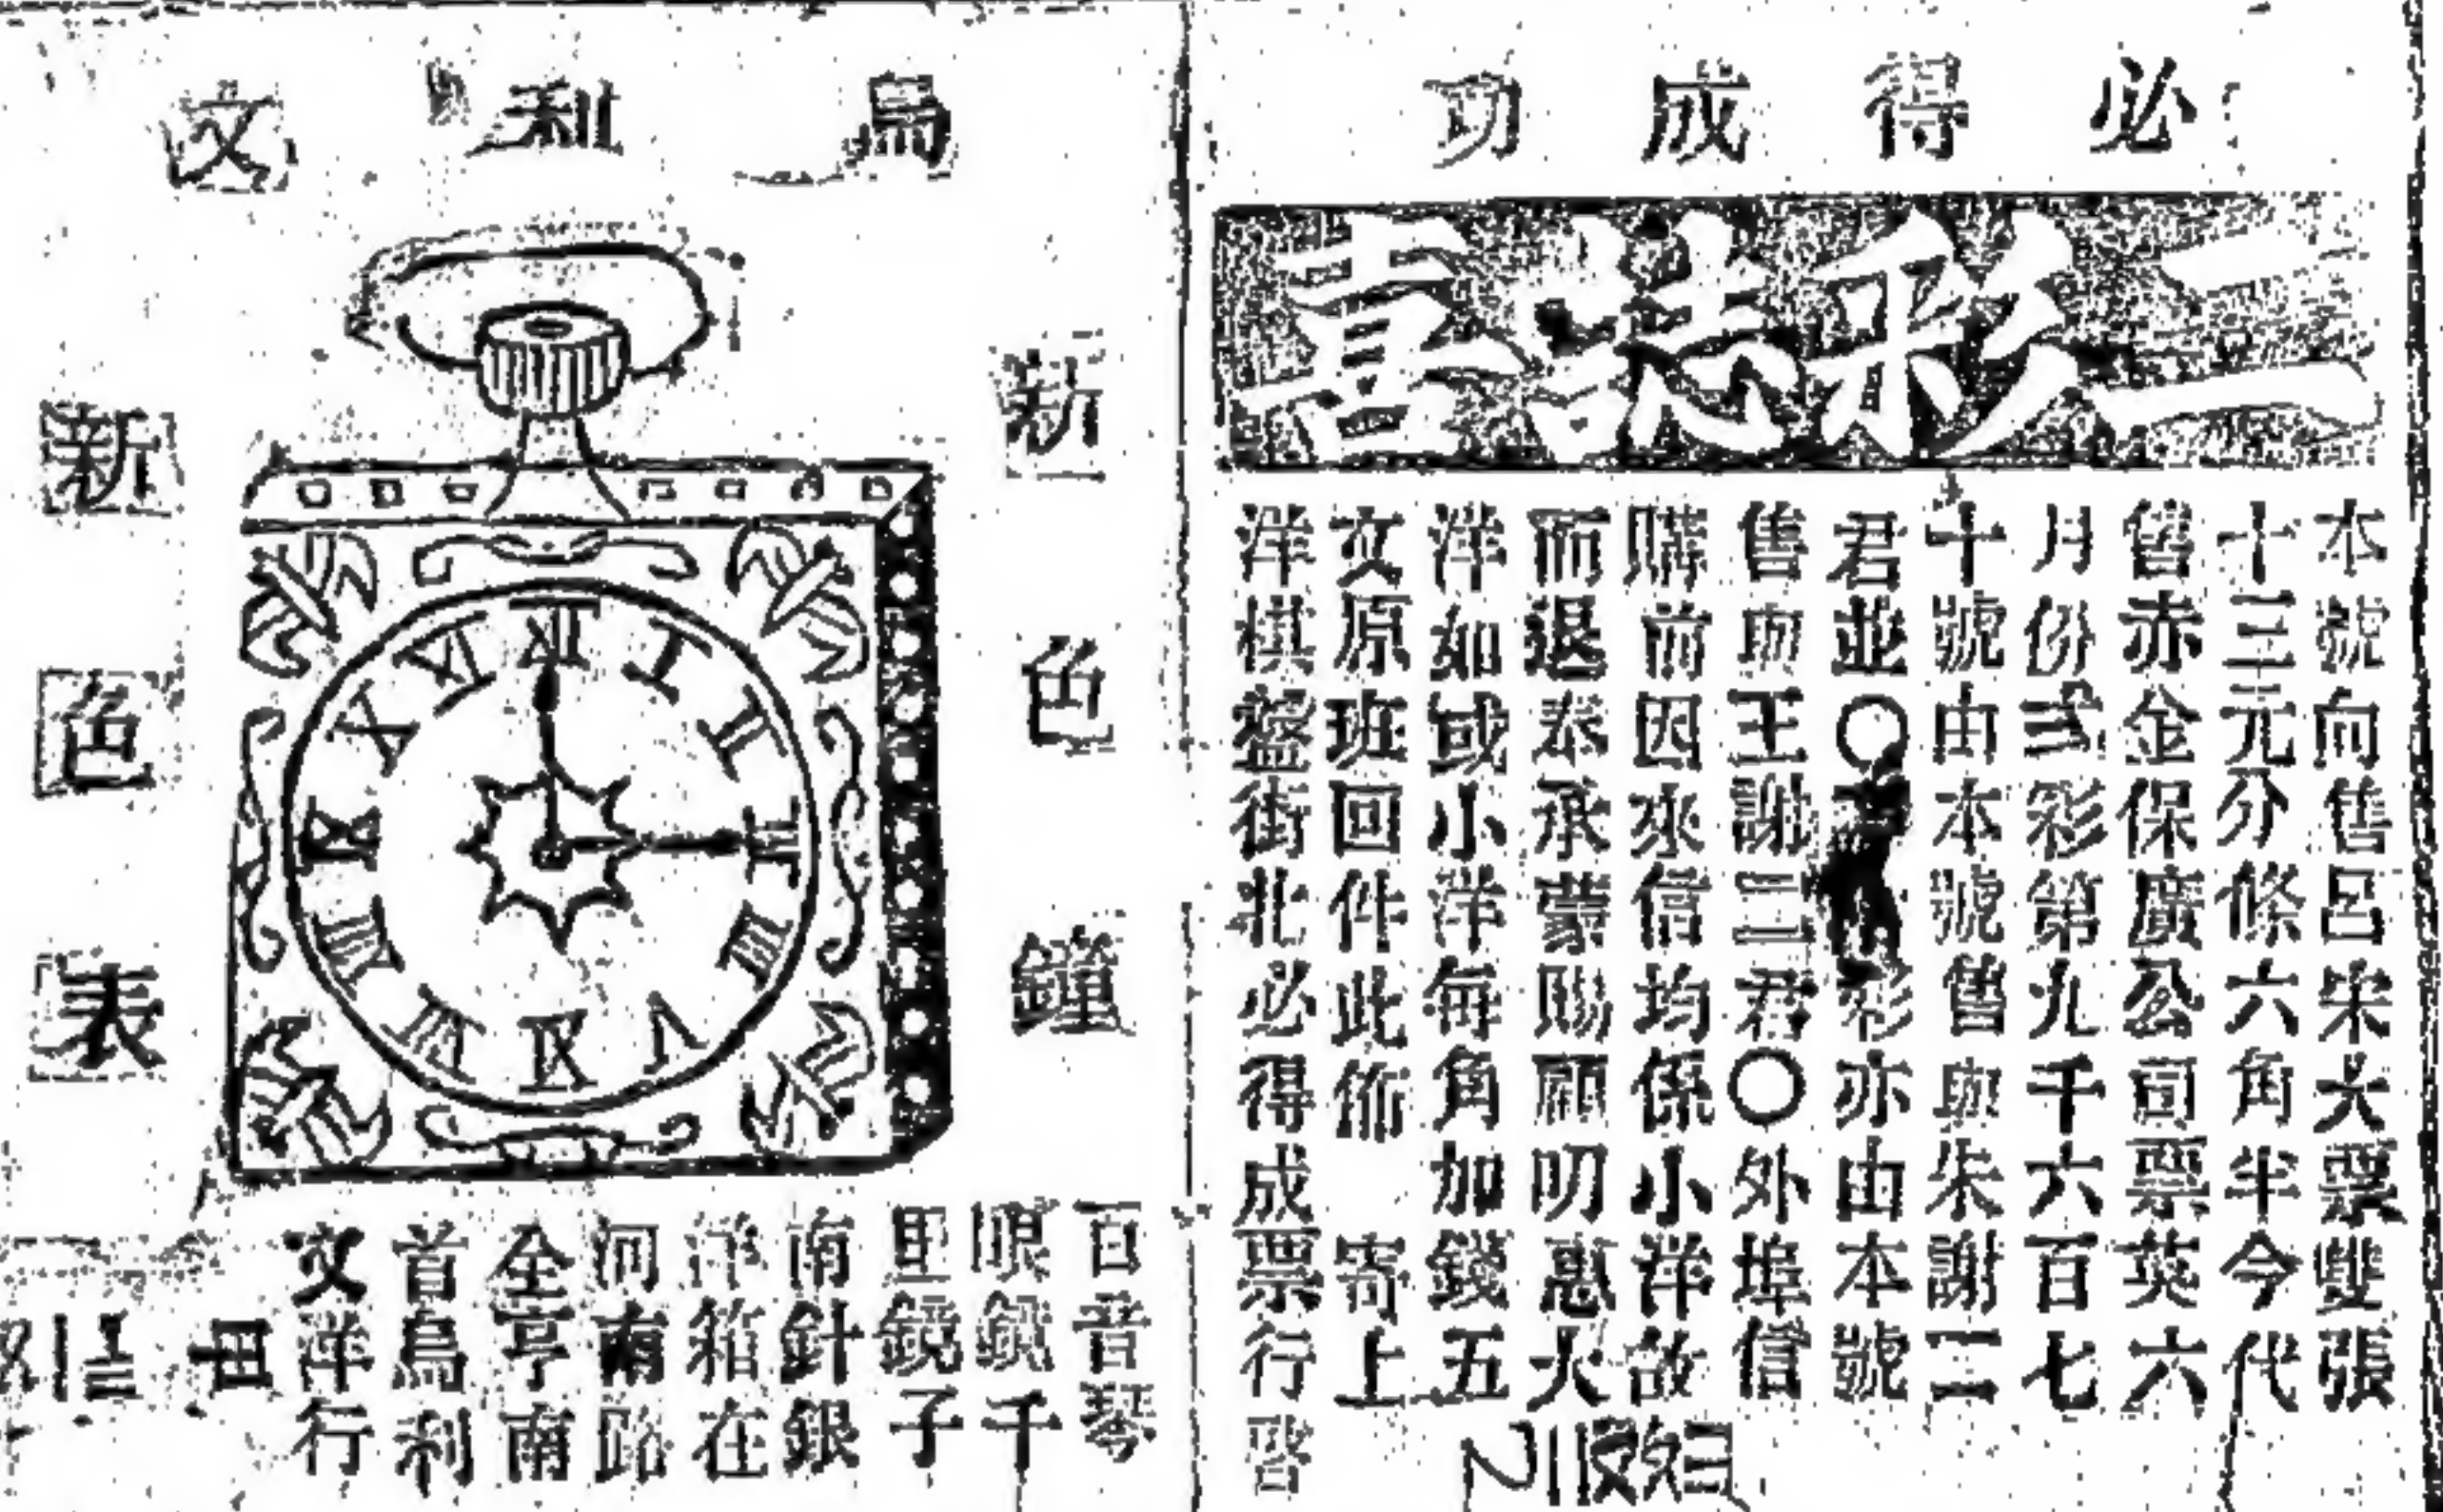 必得成功
二彩誌喜
本號向售呂宋大票雙張
十三元分條六角半今代
售赤金保廣公司票英六
月份弍彩第九千六百七
十號由本號售與朱謝二
君並〇
彩亦由本號
售與王謝三君〇外埠信
購前因來信均係小洋故
而退奉承蒙賜顧叨惠大
洋如或小洋每角加錢五
文原班回件此佈 寄上
洋棋盤街北必得成票行啓
烏利文
新色鐘
新色表
百音琴
眼鏡千
里鏡子
南針銀
洋箱在
河南路
全亨南
首烏利
文洋行